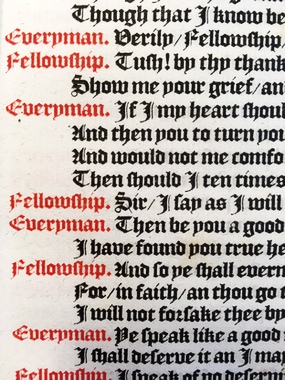 Though that I know be
Everyman. Verily/Fellowship,
Fellowship. Tush! by thy thank
Show me your grief/an
Everyman. If I my heart shoul
And then you to turn you
And would not me comfo
Then should I ten times
Fellowship. Sir/I say as I will
Everyman. Then be you a good
I have found you true he
Fellowship. And so ye shall everm
For/in faith/an thou go t
I will not forsake thee by
Everyman. Ye speak like a good
I shall deserve it an I may
Fellowship. I speak of no deservi